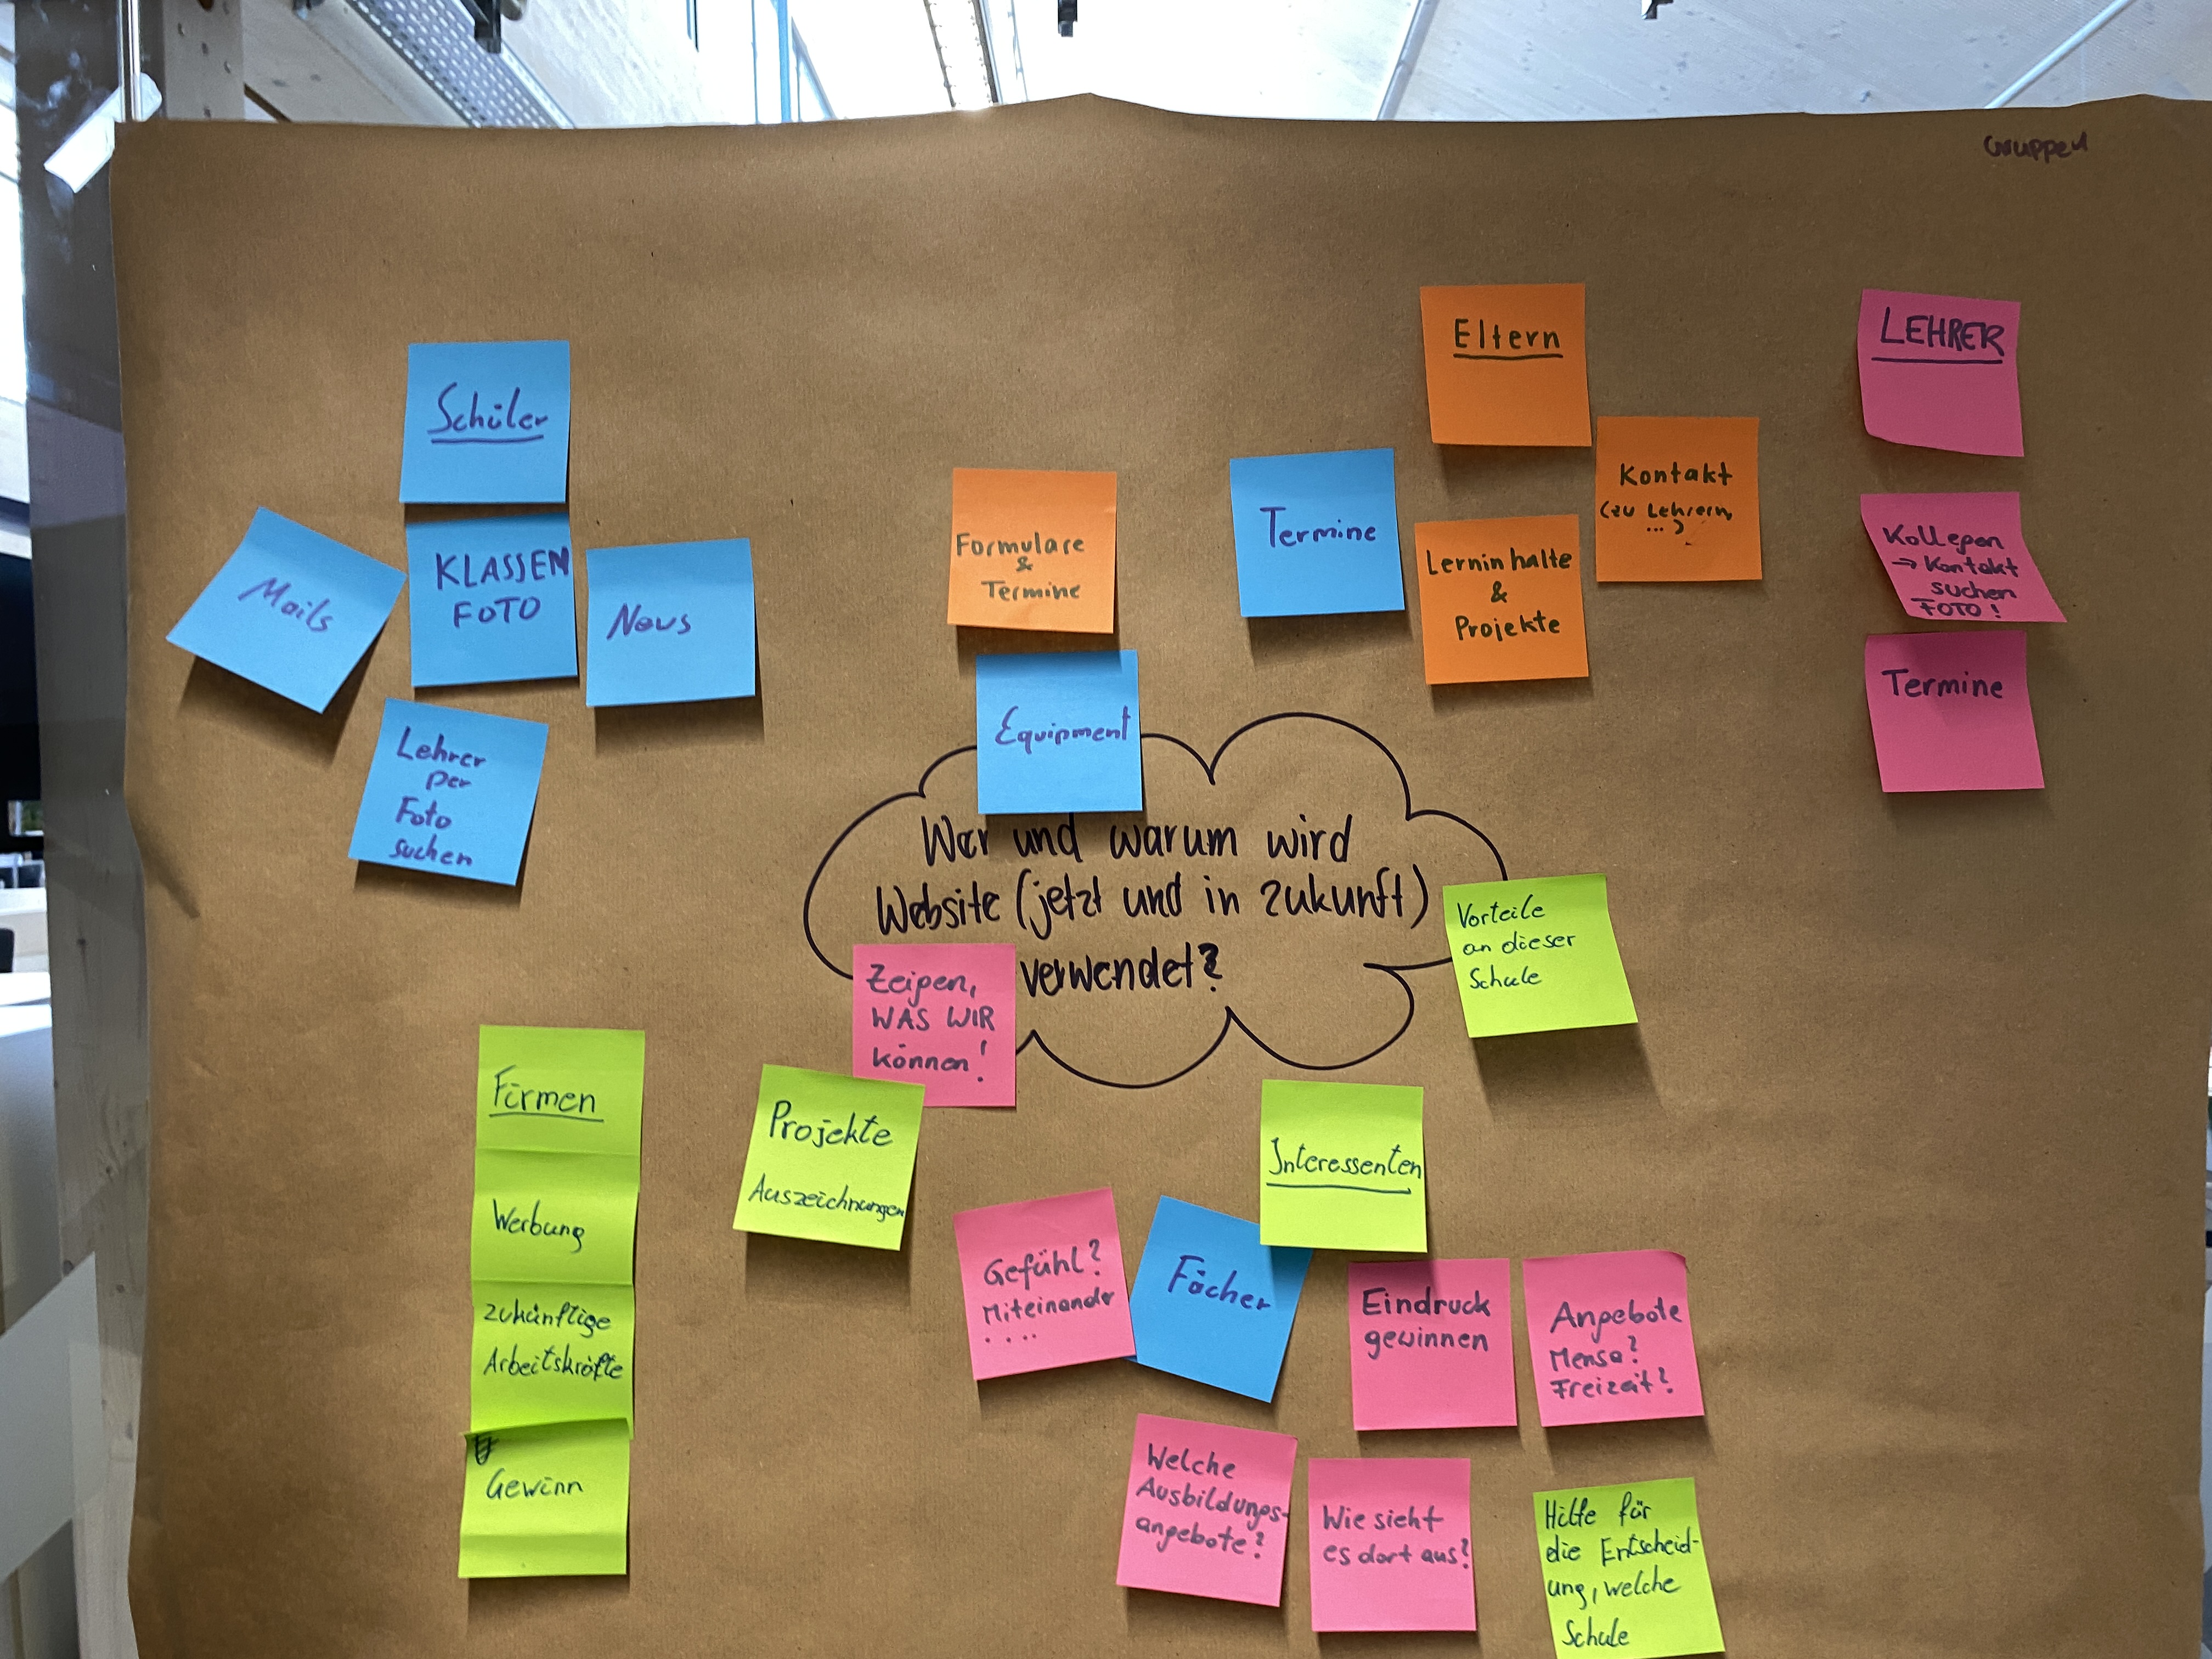 Gruppen
Schüler
Mails
KLASSEN
FOTO
News
Lehrer
per
Foto
suchen
Formulare
&
Termine
Equipment
Termine
Eltern
Kontakt
(zu Lehrern,
...)
Lerninhalte
&
Projekte
LEHRER
Kollegen
→ Kontakt
suchen
FOTO!
Termine
Wer und warum wird
Website (jetzt und in Zukunft)
verwendet?
Zeigen,
WAS WIR
können!
Vorteile
an dieser
Schule
Firmen
Werbung
zukünftige
Arbeitskräfte
Gewinn
Projekte
Auszeichnungen
Interessenten
Gefühl?
Miteinander
....
Fächer
Eindruck
gewinnen
Angebote
Mensa?
Freizeit?
Welche
Ausbildungs-
angebote?
Wie sieht
es dort aus?
Hilfe für
die Entscheid-
ung, welche
Schule